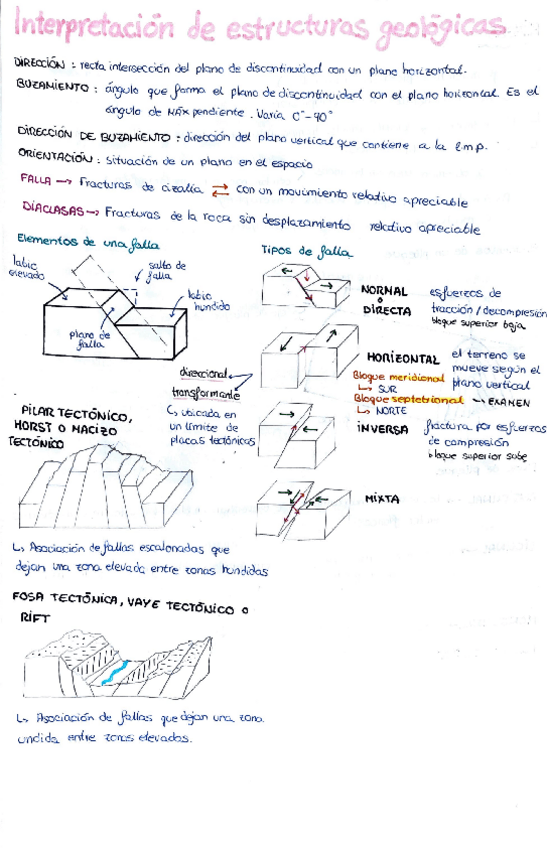 Interpretación de estructuras geológicas
DIRECCIÓN : recta intersección del plano de discontinuidad con un plano horizontal.
BUZAMIENTO : ángulo que forma el plano de discontinuidad con el plano horizontal. Es el
ángulo de MÁX pendiente. Varia 0°-90°
DIRECCIÓN DE BUZAMIENTO : dirección del plano vertical que contiene a la l.m.p.
ORIENTACIÓN : situación de un plano en el espacio
FALLA → Fracturas de cizalla ⇄ con un movimiento relativo apreciable
DIACLASAS → Fracturas de la roca sin desplazamiento relativo apreciable
Elementos de una falla
labio
elevado
salto de
falla
labio
hundido
plano de
falla
Tipos de falla
NORMAL
o
DIRECTA
esfuerzos de
tracción / decompresión
bloque superior baja
HORIZONTAL
el terreno se
mueve según el
plano vertical
Bloque meridional
↳ SUR
Bloque septetrional → EXAMEN
↳ NORTE
direccional
transformante
↳ ubicada en
un límite de
placas tectónicas
INVERSA
fractura por esfuerzos
de compresión
bloque superior sube
MIXTA
PILAR TECTÓNICO,
HORST O MACIZO
TECTÓNICO
↳ Asociación de fallas escalonadas que
dejan una zona elevada entre zonas hundidas
FOSA TECTÓNICA, VAYE TECTÓNICO o
RIFT
↳ Asociación de fallas que dejan una zona
undida entre zonas elevadas.